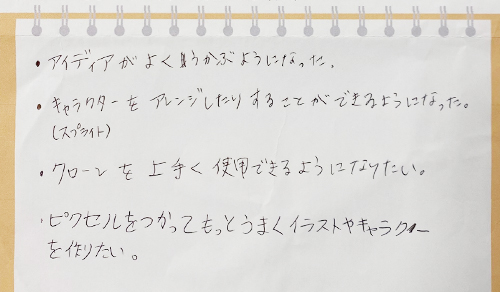 ・アイディアがよくうかぶようになった。
・キャラクターをアレンジしたりすることができるようになった。
(スプライト)
・クローンを上手く使用できるようになりたい。
・ピクセルをつかってもっとうまくイラストやキャラクター
を作りたい。